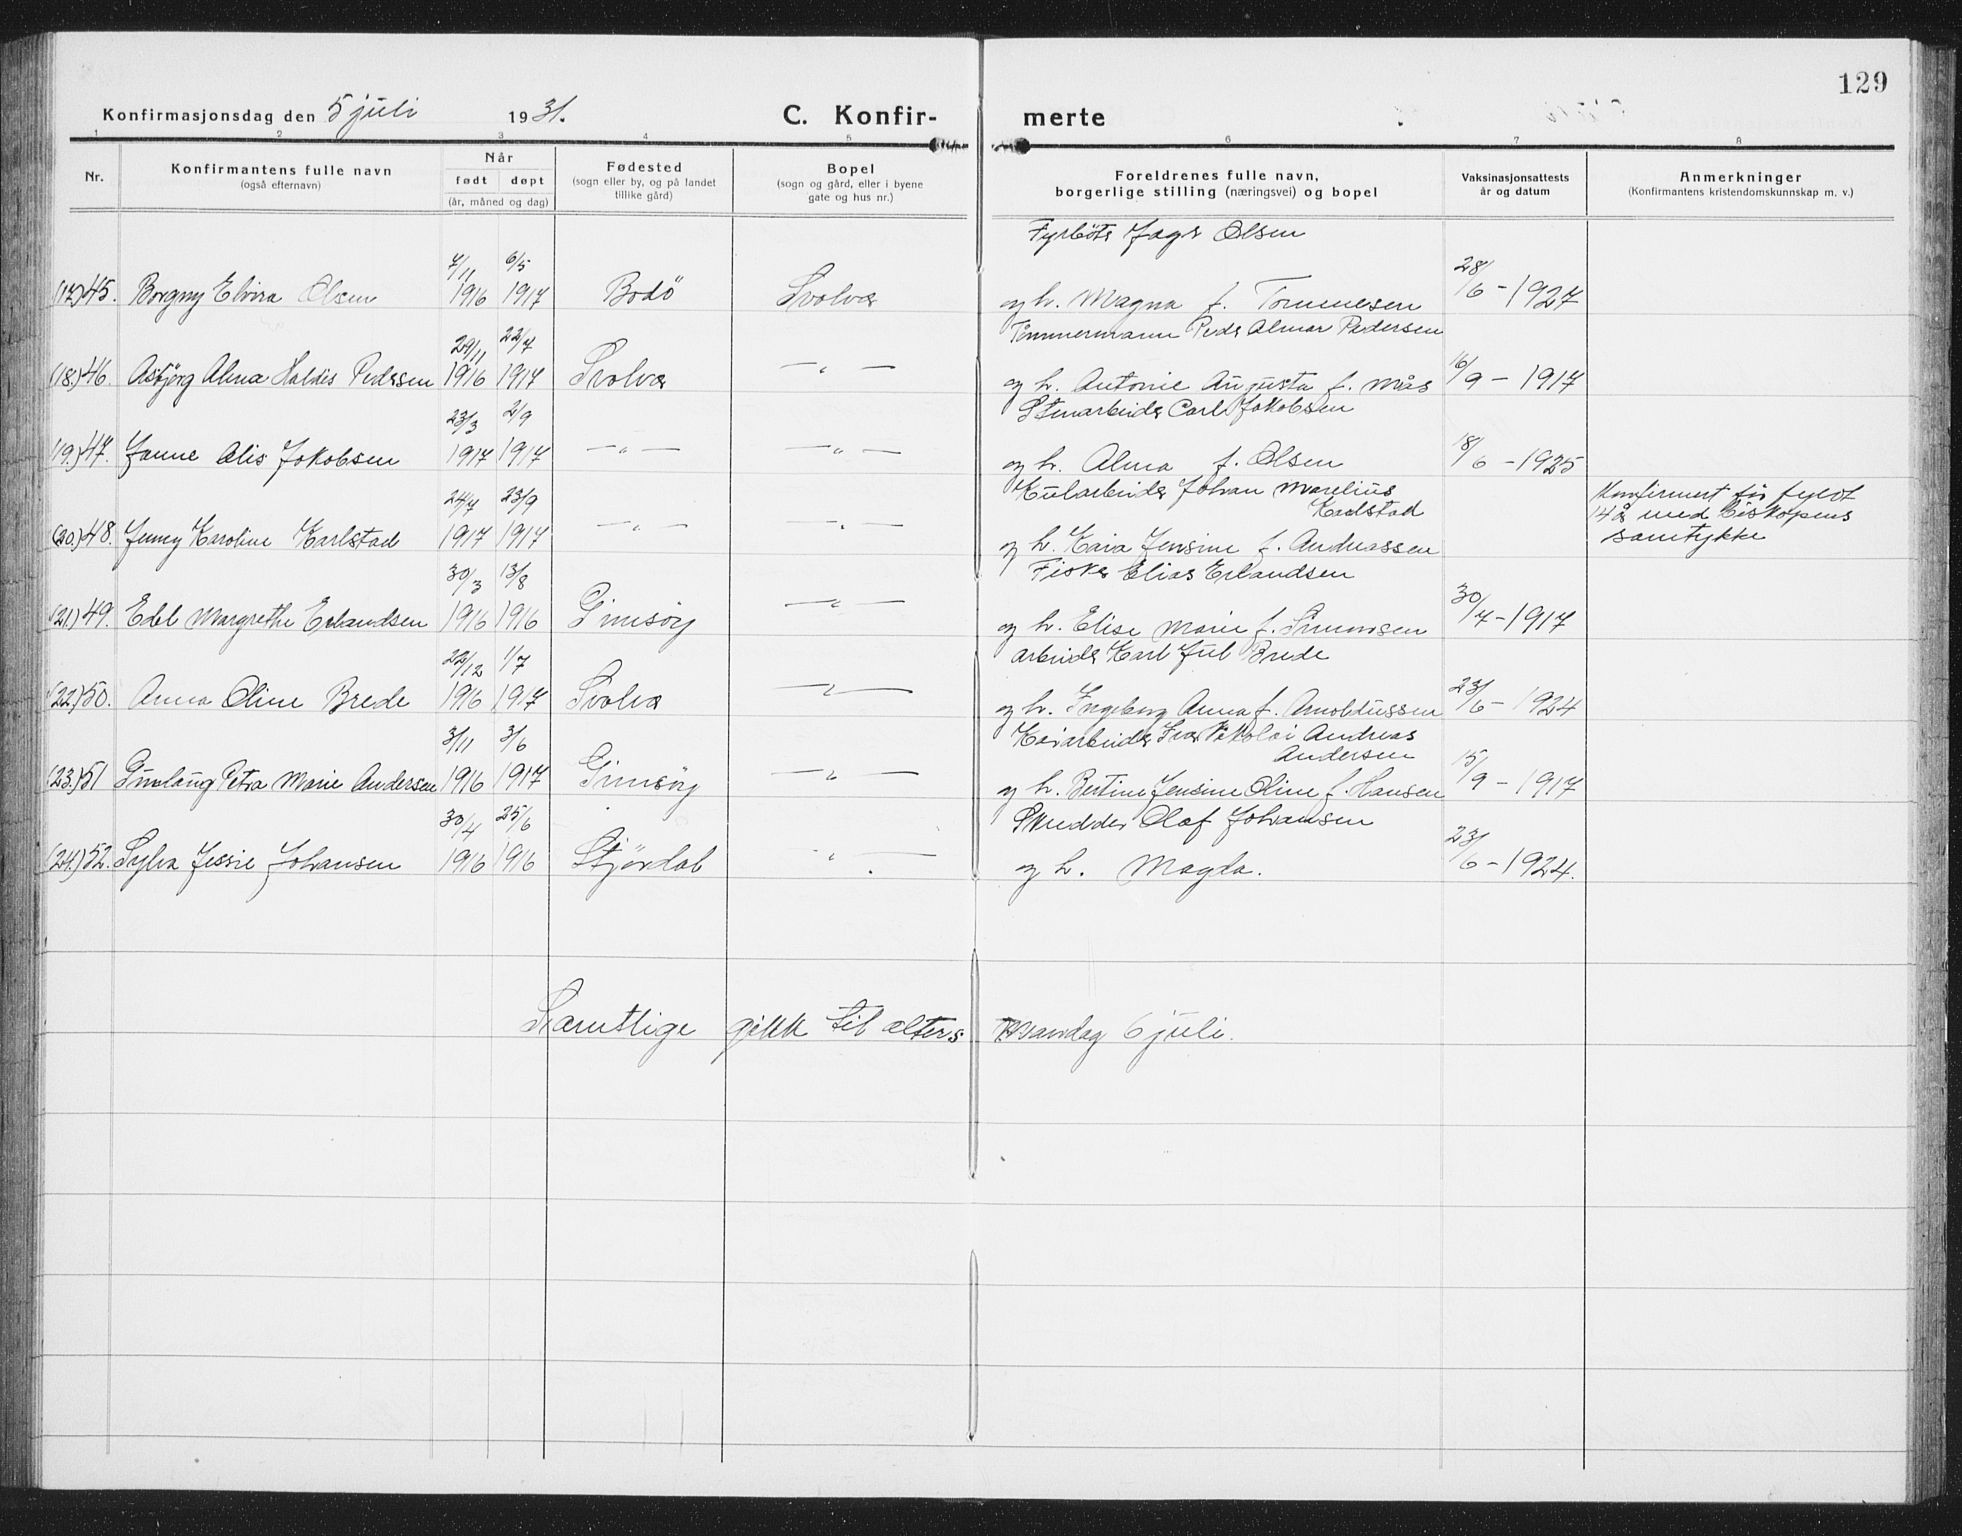 129
Konfirmasjonsdag den 5 juli 1931. C. Konfir- merte
1 2 3 4 5 6 7 8
Nr. Konfirmantens fulle navn (også efternavn) Når født døpt (år, måned og dag) Fødested (sogn eller by, og på landet tillike gård) Bopel (sogn og gård, eller i byene gate og hus nr.) Foreldrenes fulle navn, borgerlige stilling (næringsvei) og bopel Vaksinasjonsattests år og datum Anmerkninger (Konfirmantens kristendomskunnskap m. v.)
Fyrbøter Olsen
7/11 6/5 28/6 - 1927
(17) 45. Borgny Elvira Olsen 1916 1917 Bodö Svolvær og h. Magna f. Tønnesen
Tømmermann Peder Almar Pedersen
29/11 22/7 16/9 - 1917
(18.) 46. Asbjørg Alma Haldis Pedersen 1916 1917 Svolvær — „ — og h. Antonie Augusta f. Mås
Stenarbeider Carl Jakobsen
23/3 2/9 18/6 - 1925
(19.) 47. Janne Alis Jakobsen 1917 1917 — „ — — „ — og h. Alma f. Olsen
Kularbeider Johan Marelius Karlstad
24/7 23/9 Konfirmert før fyldt
(20.) 48. Jenny Karoline Karlstad 1917 1917 — „ — — „ — og h. Kaia Jensine f. Andreassen 14 år med biskopens
samtykke
Fisker Elias Erlandsen
30/3 13/8 30/7 - 1917
(21.) 49. Edel Margrethe Erlandsen 1916 1916 Gimsøy — „ — og h. Elise Marie f. Simonsen
arbeider Karl Jul Brede
22/12 1/7 23/6 - 1924
(22.) 50. Anna Oline Brede 1916 1917 Svolvær — „ — og h. Ingeborg Anna f. Arnoldussen
Kaiarbeider Ivar Nikolai Andreas Andersen
3/11 3/6 15/9 - 1917
(23.) 51 Gunlaug Petra Marie Andersen 1916 1917 Gimsøy — „ — og h. Bertine Jensine Oline f. Hansen
Skredder Olaf Johansen
30/4 25/6 23/6 - 1924.
(24.) 52. Sylva Jessie Johansen 1916 1916 Stjørdal „ — og h. Magda.
Samtlige gikk til alters Mandag 6 juli.